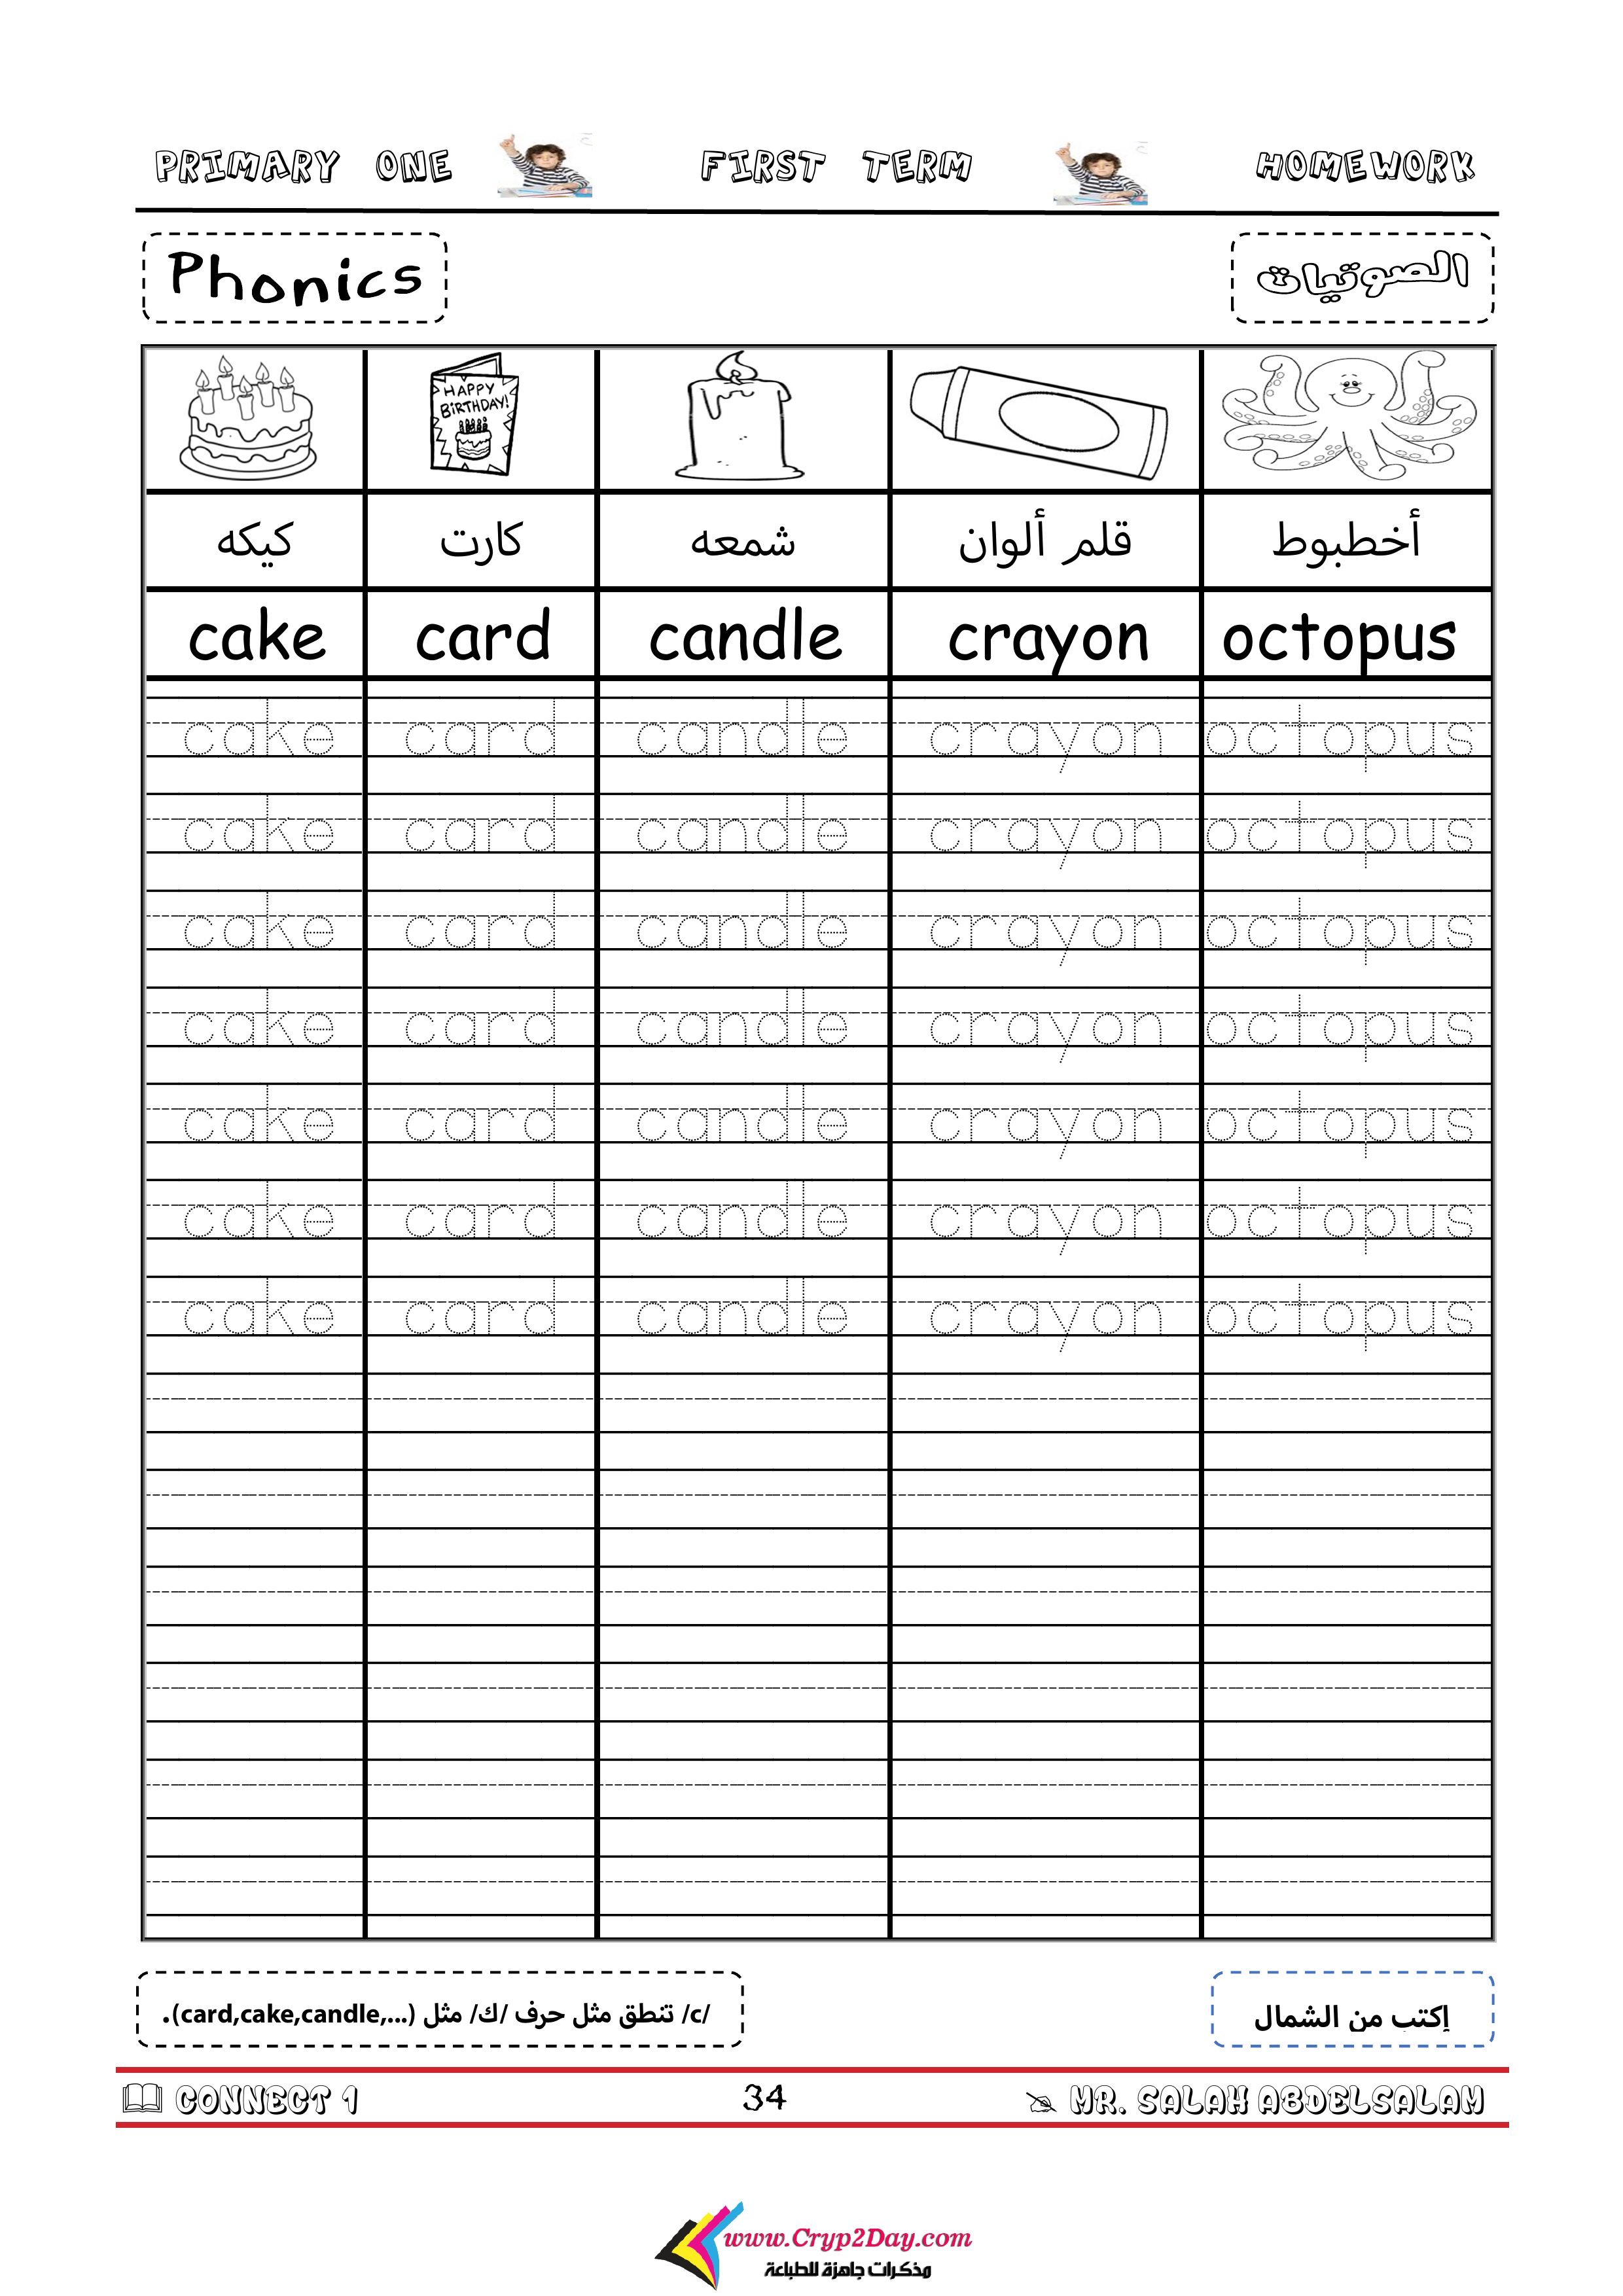 PRIMARY ONE FIRST TERM HOMEWORK
Phonics الصوتيات
HAPPY
BIRTHDAY!
كيكه كارت شمعه قلم ألوان أخطبوط
cake card candle crayon octopus
cake card candle crayon octopus
cake card candle crayon octopus
cake card candle crayon octopus
cake card candle crayon octopus
cake card candle crayon octopus
cake card candle crayon octopus
cake card candle crayon octopus
/c/ تنطق مثل حرف /ك/ مثل (card,cake,candle,...).
إكتب من الشمال
CONNECT 1 34 MR. SALAH ABDELSALAM
www.Cryp2Day.com
مذكرات جاهزة للطباعة